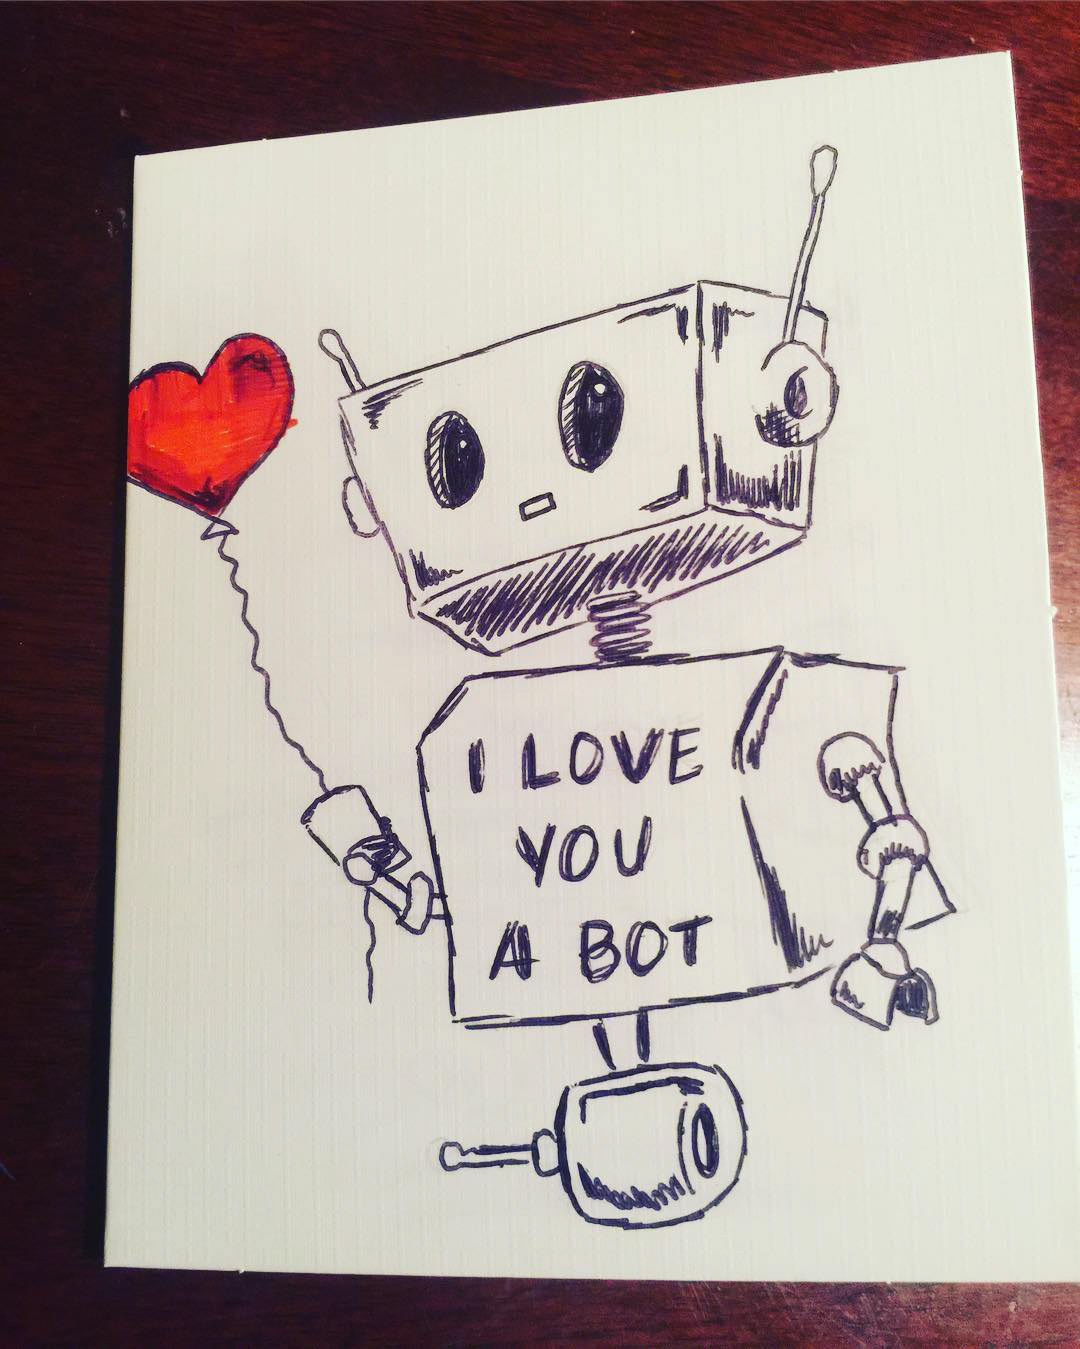 I LOVE
YOU
A BOT